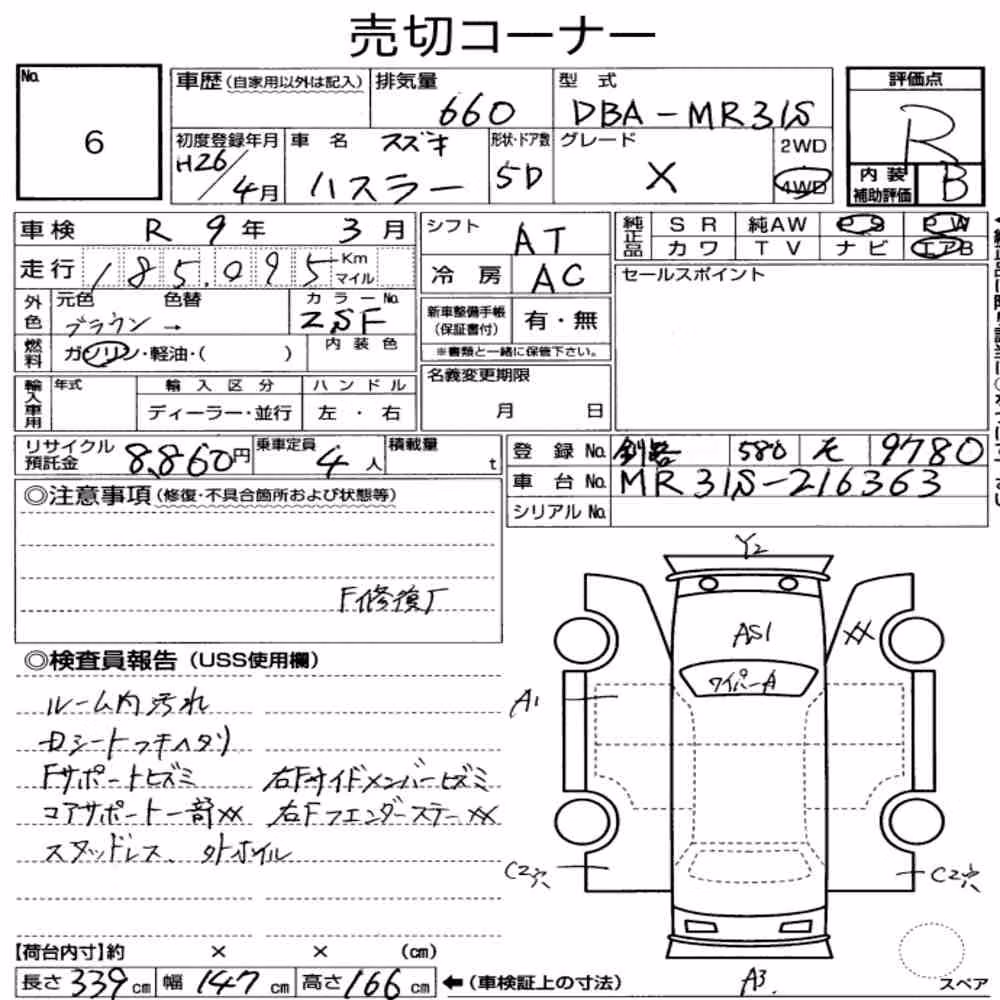 売切コーナー
No.
6
車歴(自家用以外は記入)
排気量
660
型 式
DBA-MR31S
評価点
R
初度登録年月
H26/4月
車 名 スズキ
ハスラー
形状・ドア数
5D
グレード
X
2WD
4WD
内 装
補助評価
B
車検 R 9年 3月
シフト
AT
純正品
SR 純AW PS PW
カワ TV ナビ エアB
走行 185,095 Km
マイル
冷 房
AC
セールスポイント
外色
元色 色替
ブラウン →
カラーNo.
ZSF
新車整備手帳
(保証書付)
有・無
燃料
ガソリン・軽油・( )
内 装 色
※書類と一緒に保管下さい。
輸入車用
年式
輸 入 区 分
ハ ン ド ル
ディーラー・並行
左 ・ 右
名義変更期限
月 日
リサイクル
預託金
8,860円
乗車定員 4人
積載量 t
登 録 No. 釧路 580 え 9780
車 台 No. MR31S-216363
シリアル No.
◎注意事項(修復・不具合箇所および状態等)
F修復厂
◎検査員報告(USS使用欄)
ルーム内汚れ
Dシートフチヘタリ
Fサポートヒズミ 右Fサイドメンバーヒズミ
コアサポート一部XX 右FフェンダーステーXX
スタッドレス、外ホイル
Y2
AS1
XX
ワイパーA
A1
C2穴
C2穴
A3
スペア
【荷台内寸】約 × × (cm)
長さ 339 cm 幅 147 cm 高さ 166 cm ←(車検証上の寸法)